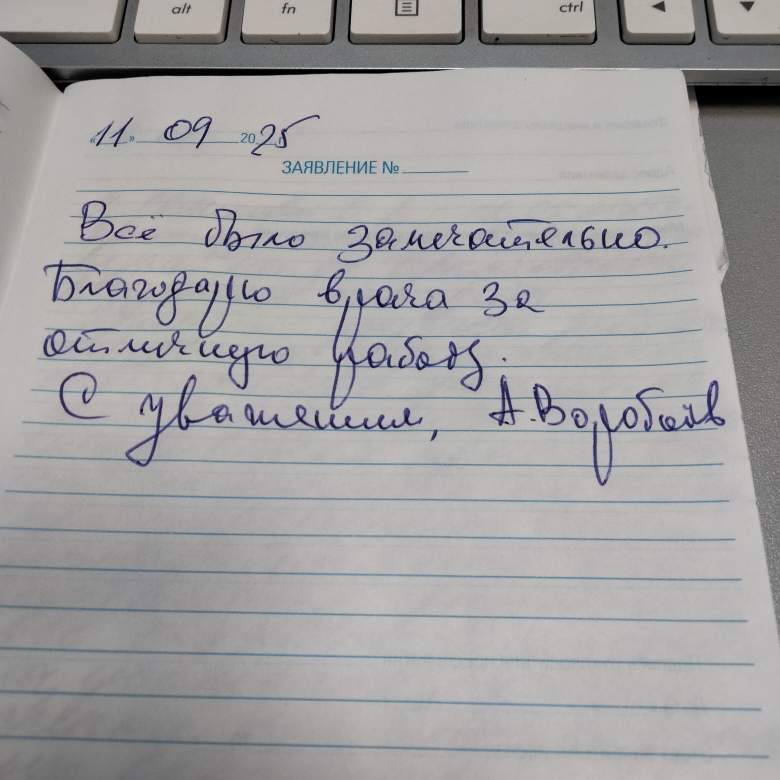 alt fn ctrl
«11» 09 2025
ЗАЯВЛЕНИЕ №
Всё было замечательно.
Благодарю врача за
отличную работу.
С уважением, А.Воробьёв